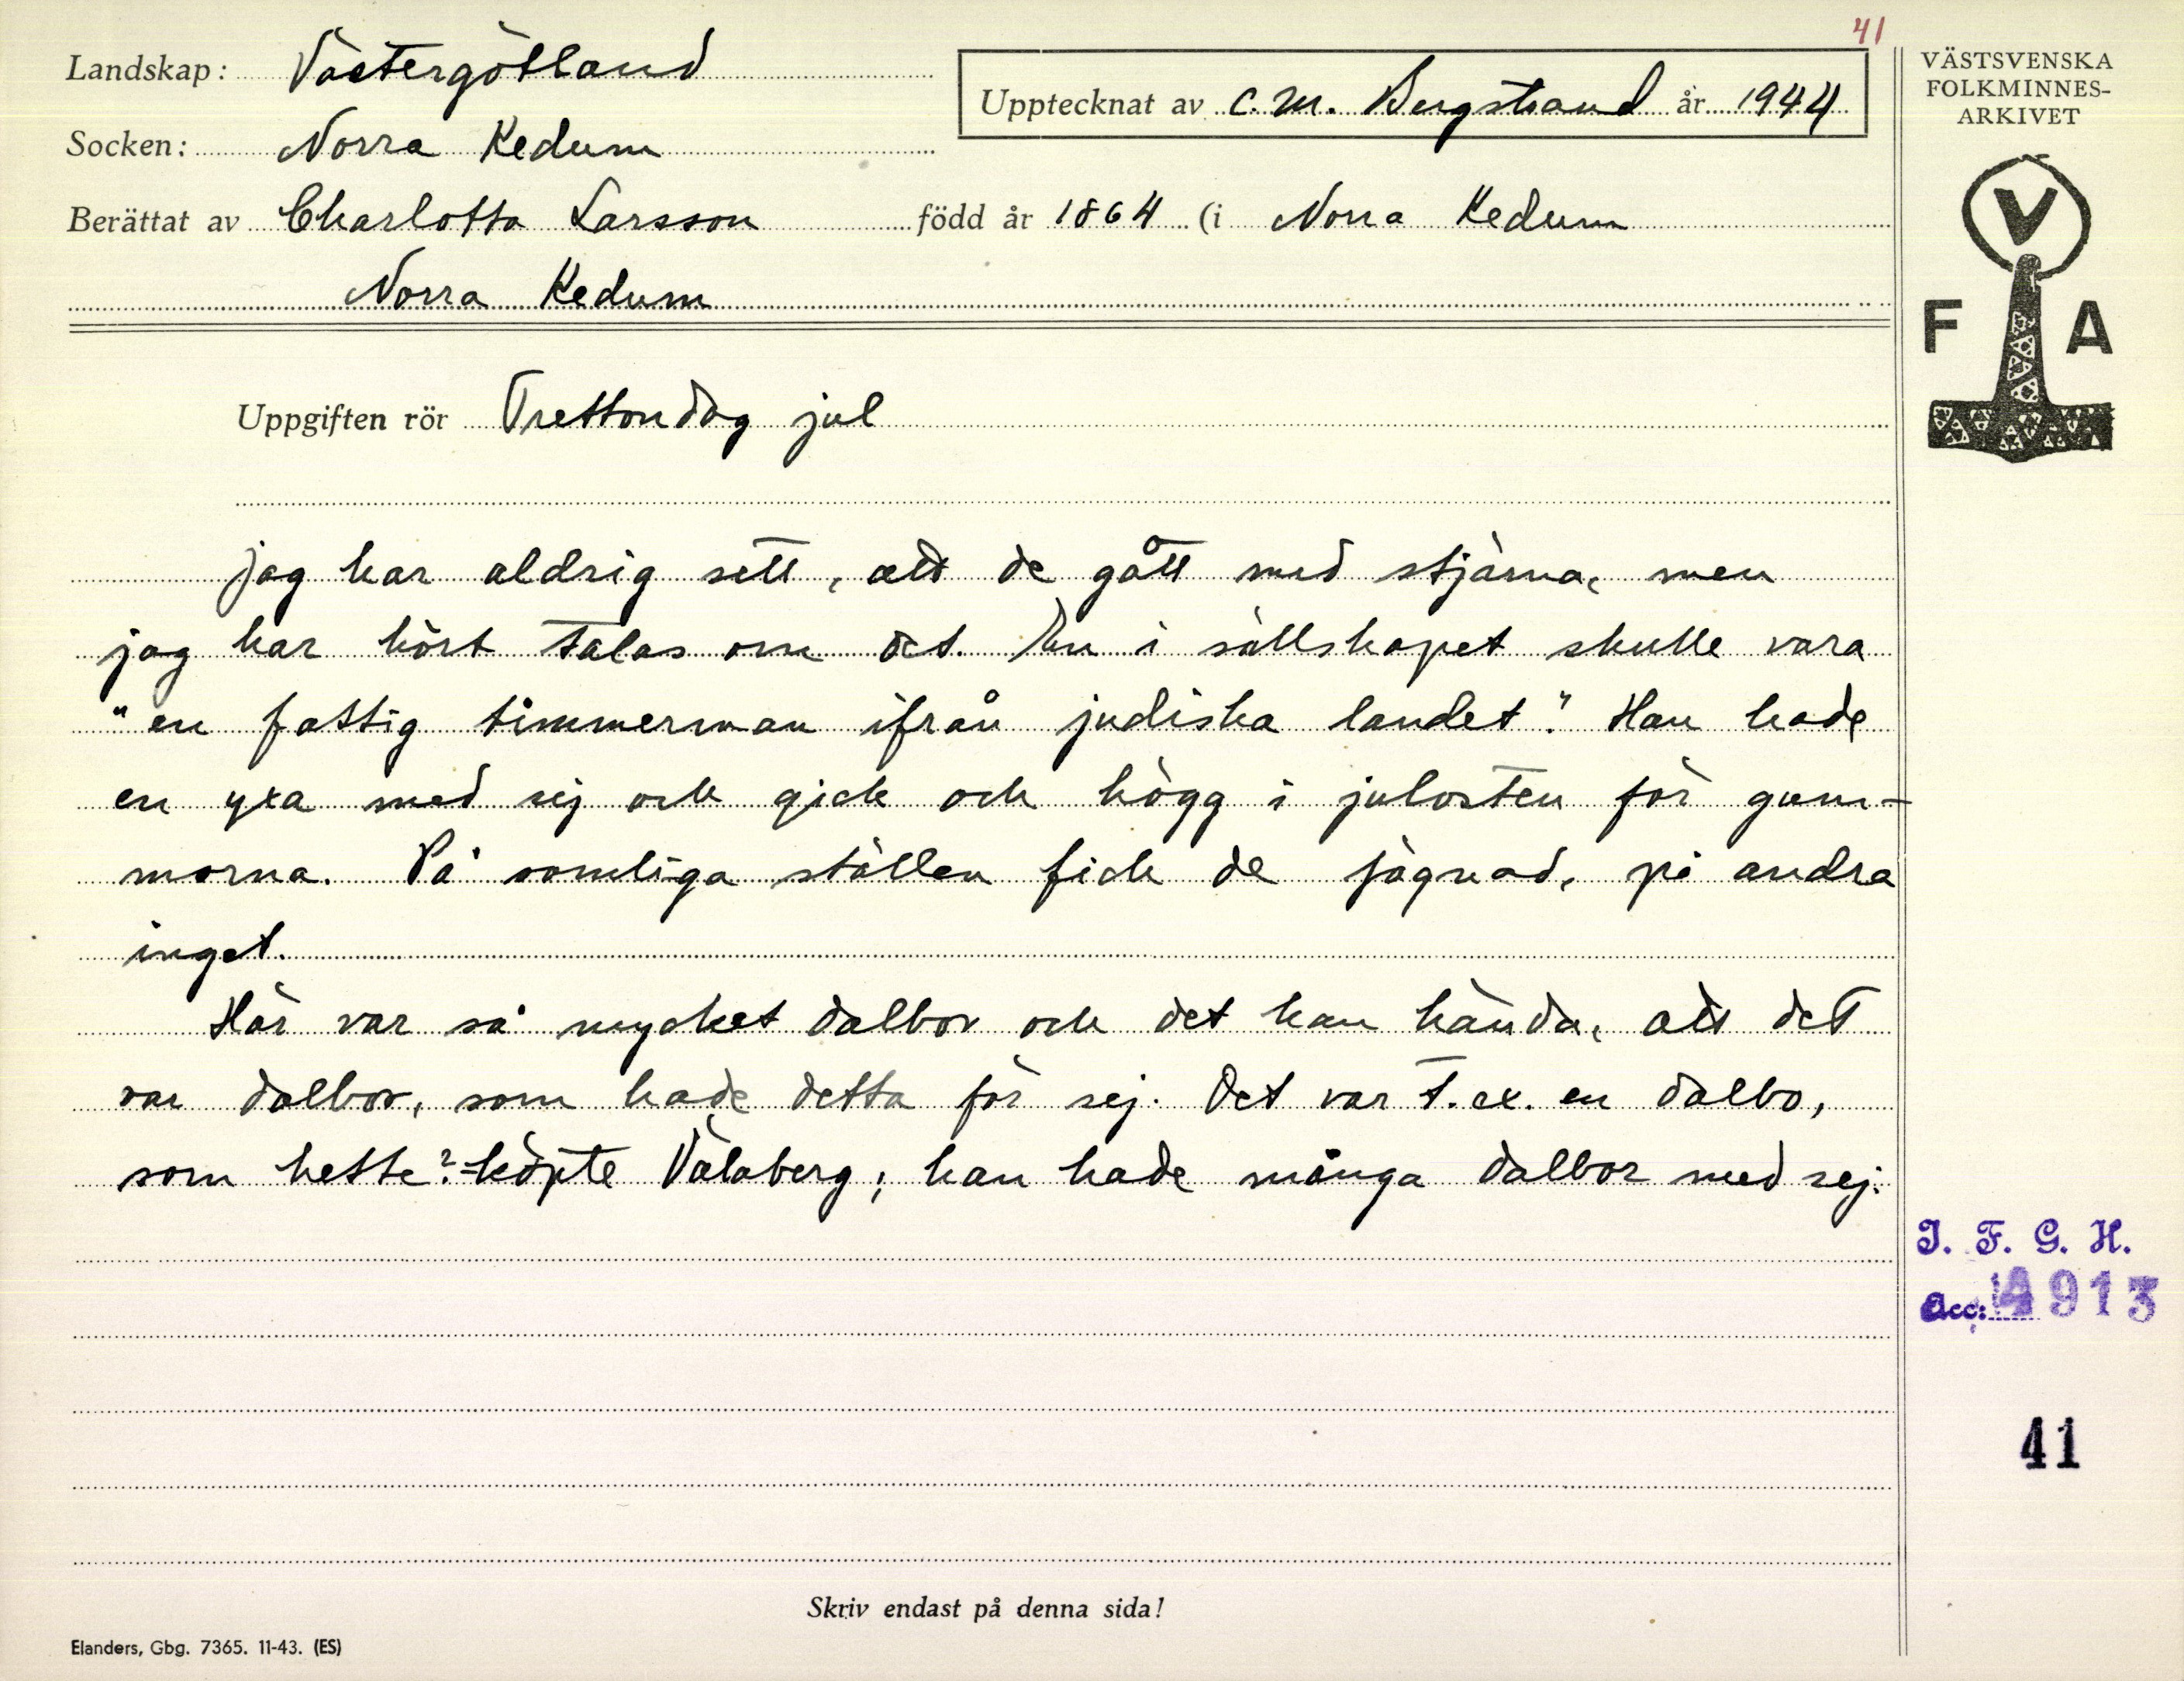 41
Landskap: Västergötland
Upptecknat av C. M. Bergstrand år 1944
Socken: Norra Kedum
Berättat av Charlotta Larsson född år 1864 (i Norra Kedum
Norra Kedum
VÄSTSVENSKA
FOLKMINNES-
ARKIVET
V
F A
Uppgiften rör Trettondag jul
Jag har aldrig sett, att de gått med stjärna, men
jag har hört talas om det. En i sällskapet skulle vara
"en fattig timmerman ifrån judiska landet". Han hade
en yxa med sej och gick och högg i julosten för gum-
morna. På somliga ställen fick de fägnad, på andra
inget.
Här var så mycket dalbor och det kan hända, att det
var dalbor, som hade detta för sej. Det var t.ex. en dalbo,
som hette? köpte Välaberg; han hade många dalbor med sej.
I. F. G. H.
Acc: 4913
41
Skriv endast på denna sida!
Elanders, Gbg. 7365. 11-43. (ES)